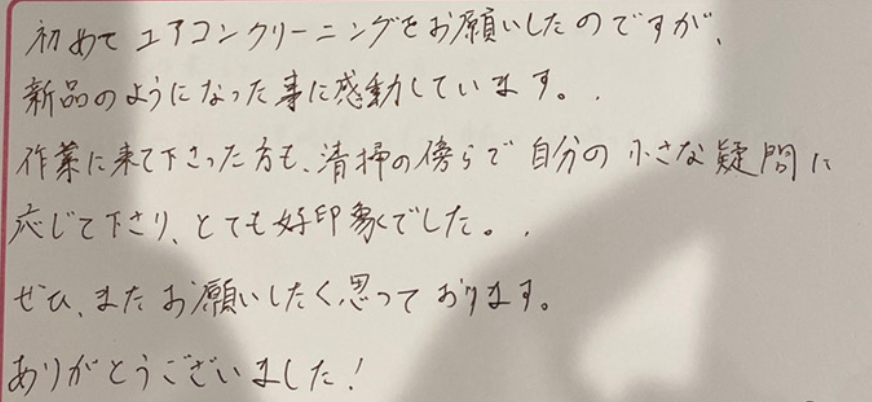 初めてエアコンクリーニングをお願いしたのですが、
新品のようになった事に感動しています。
作業に来て下さった方も、清掃の傍らで自分の小さな疑問に
応じて下さり、とても好印象でした。
ぜひ、またお願いしたく思っております。
ありがとうございました!